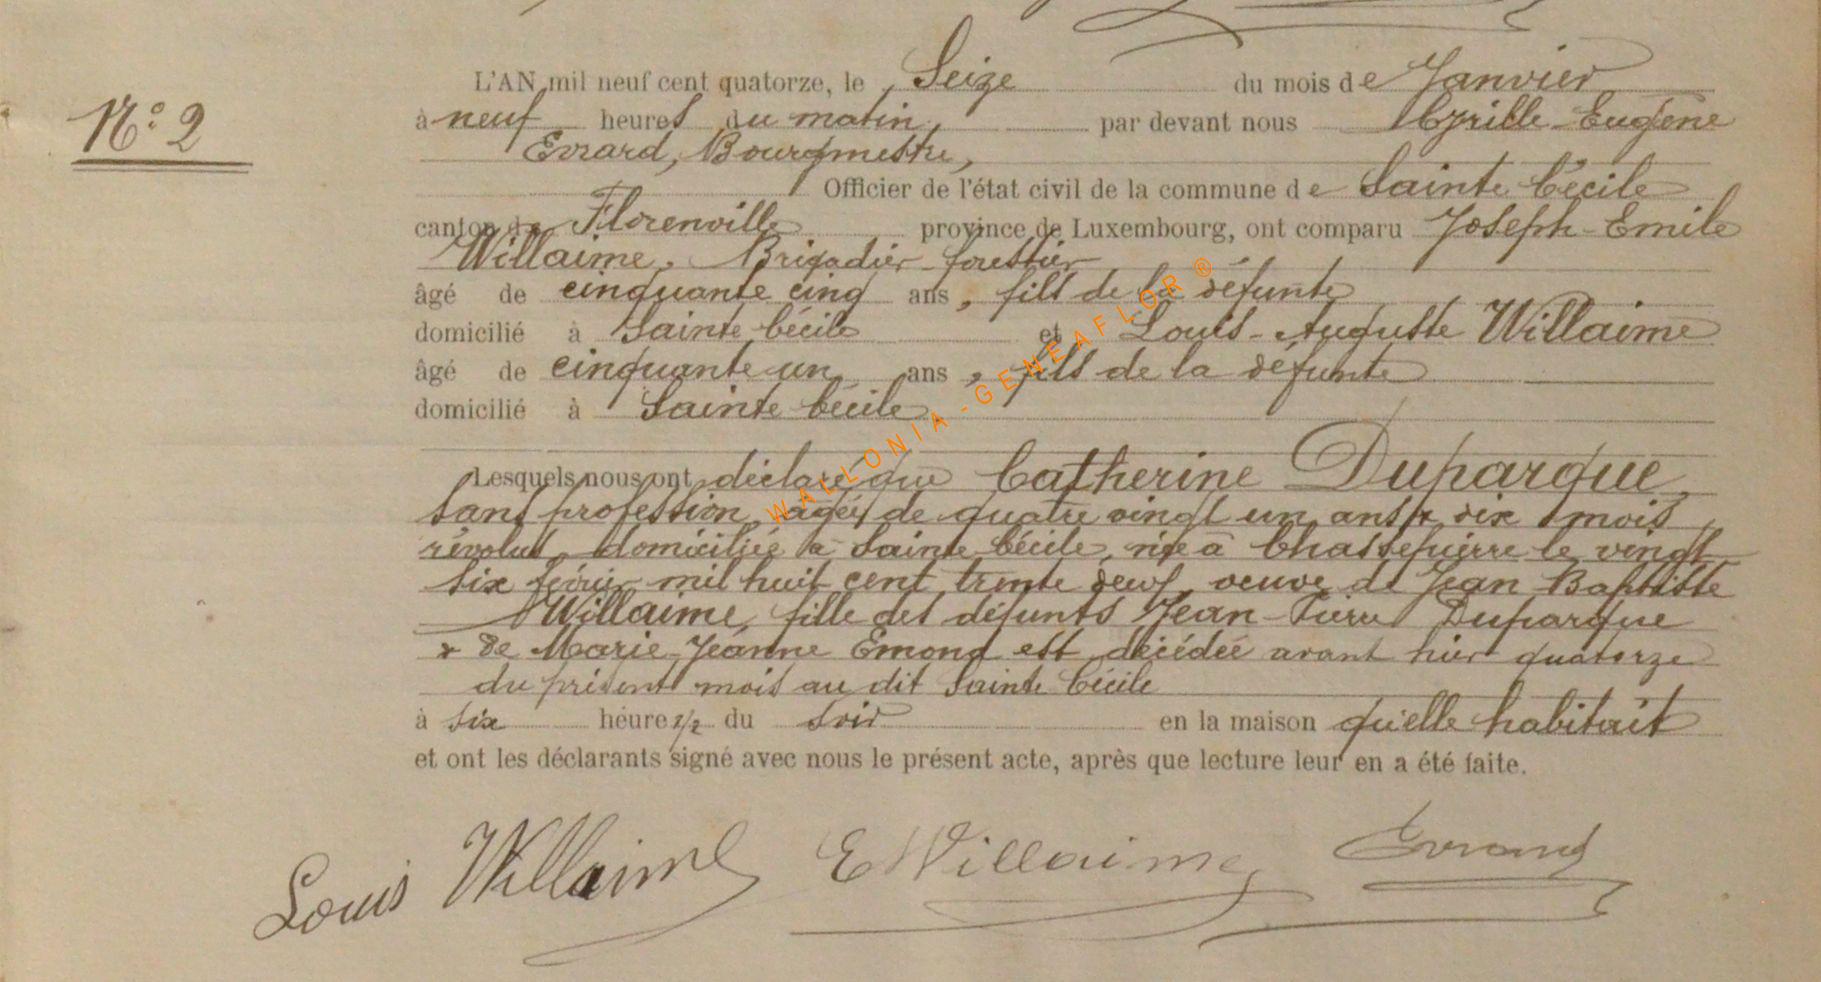 N° 2
L'AN mil neuf cent quatorze, le Seize du mois de Janvier
à neuf heures du matin, par devant nous Cyrille-Eugène
Evrard, Bourgmestre,
Officier de l'état civil de la commune de Sainte Cécile
canton de Florenville province de Luxembourg, ont comparu Joseph-Emile
Willaime, Brigadier forestier
âgé de cinquante cinq ans, fils de la défunte
domicilié à Sainte Cécile et Louis-Auguste Willaime
âgé de cinquante un ans, fils de la défunte
domicilié à Sainte Cécile
Lesquels nous ont déclaré que Catherine Duparque,
sans profession, âgée de quatre vingt un ans & dix mois
révolus, domiciliée à Sainte Cécile, née à Chassepierre le vingt
six février mil huit cent trente deux, veuve de Jean Baptiste
Willaime, fille des défunts Jean-Pierre Duparque
& de Marie-Jeanne Emond est décédée avant hier quatorze
du présent mois au dit Sainte Cécile
à six heure 1/2 du soir en la maison qu'elle habitait
et ont les déclarants signé avec nous le présent acte, après que lecture leur en a été faite.
Louis Willaime E Willaime Evrard
WALLONIA-GENEAFLOR ®